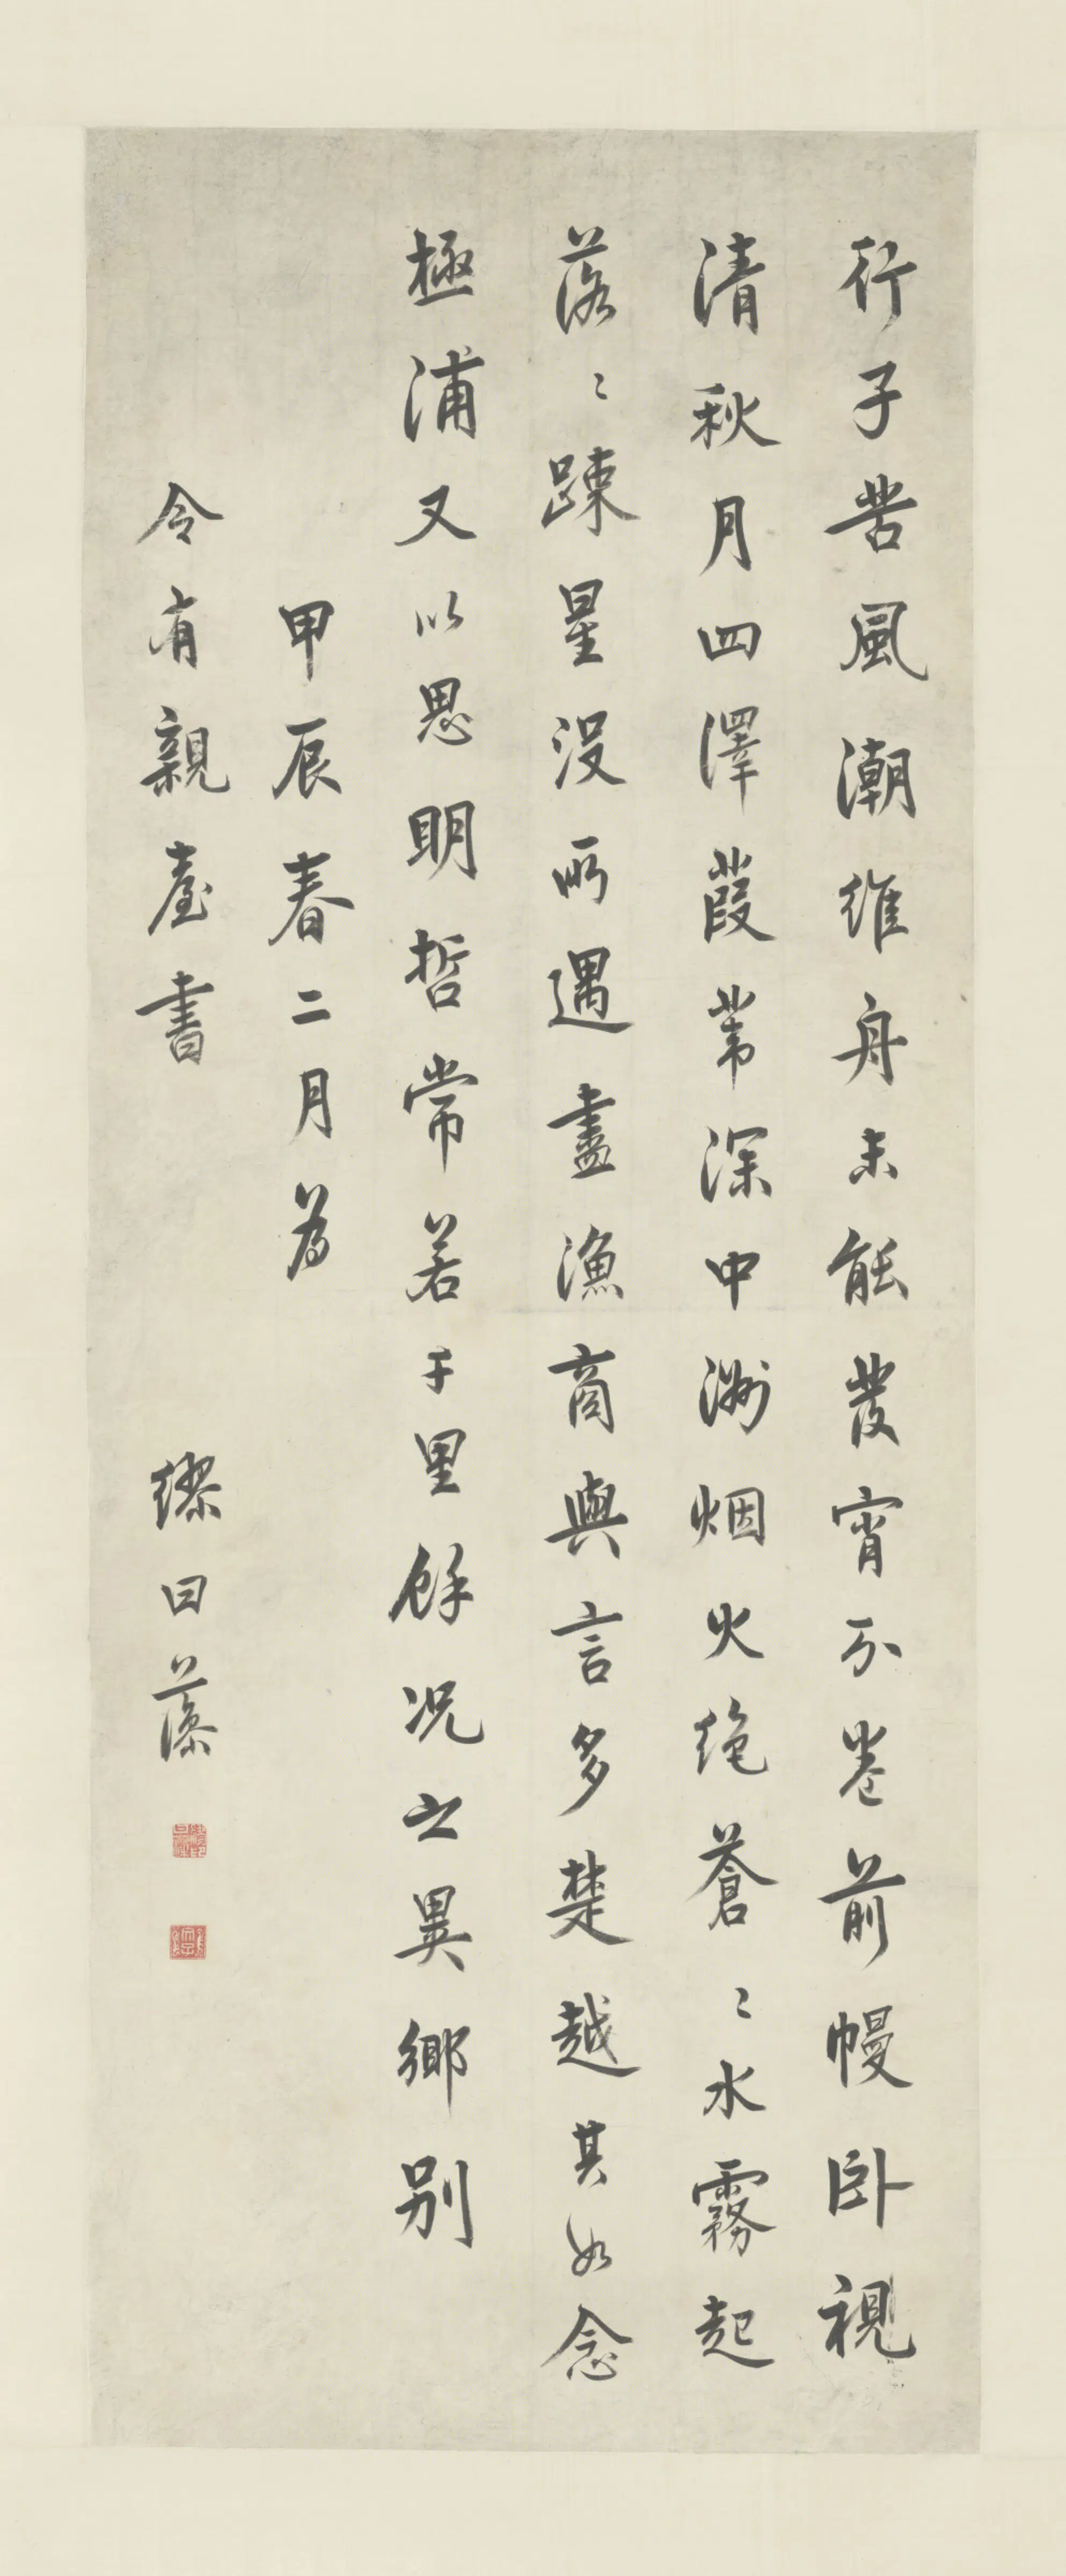 行子苦風潮維舟未能發宵分卷前幔卧視
清秋月四澤葭葦深中洲烟火绝蒼〻水霧起
落〻踈星没所遇盡漁商與言多楚越其如念
極浦又以思明哲常若千里餘况之異鄉别
甲辰春二月為
令有親臺書
繆曰藻